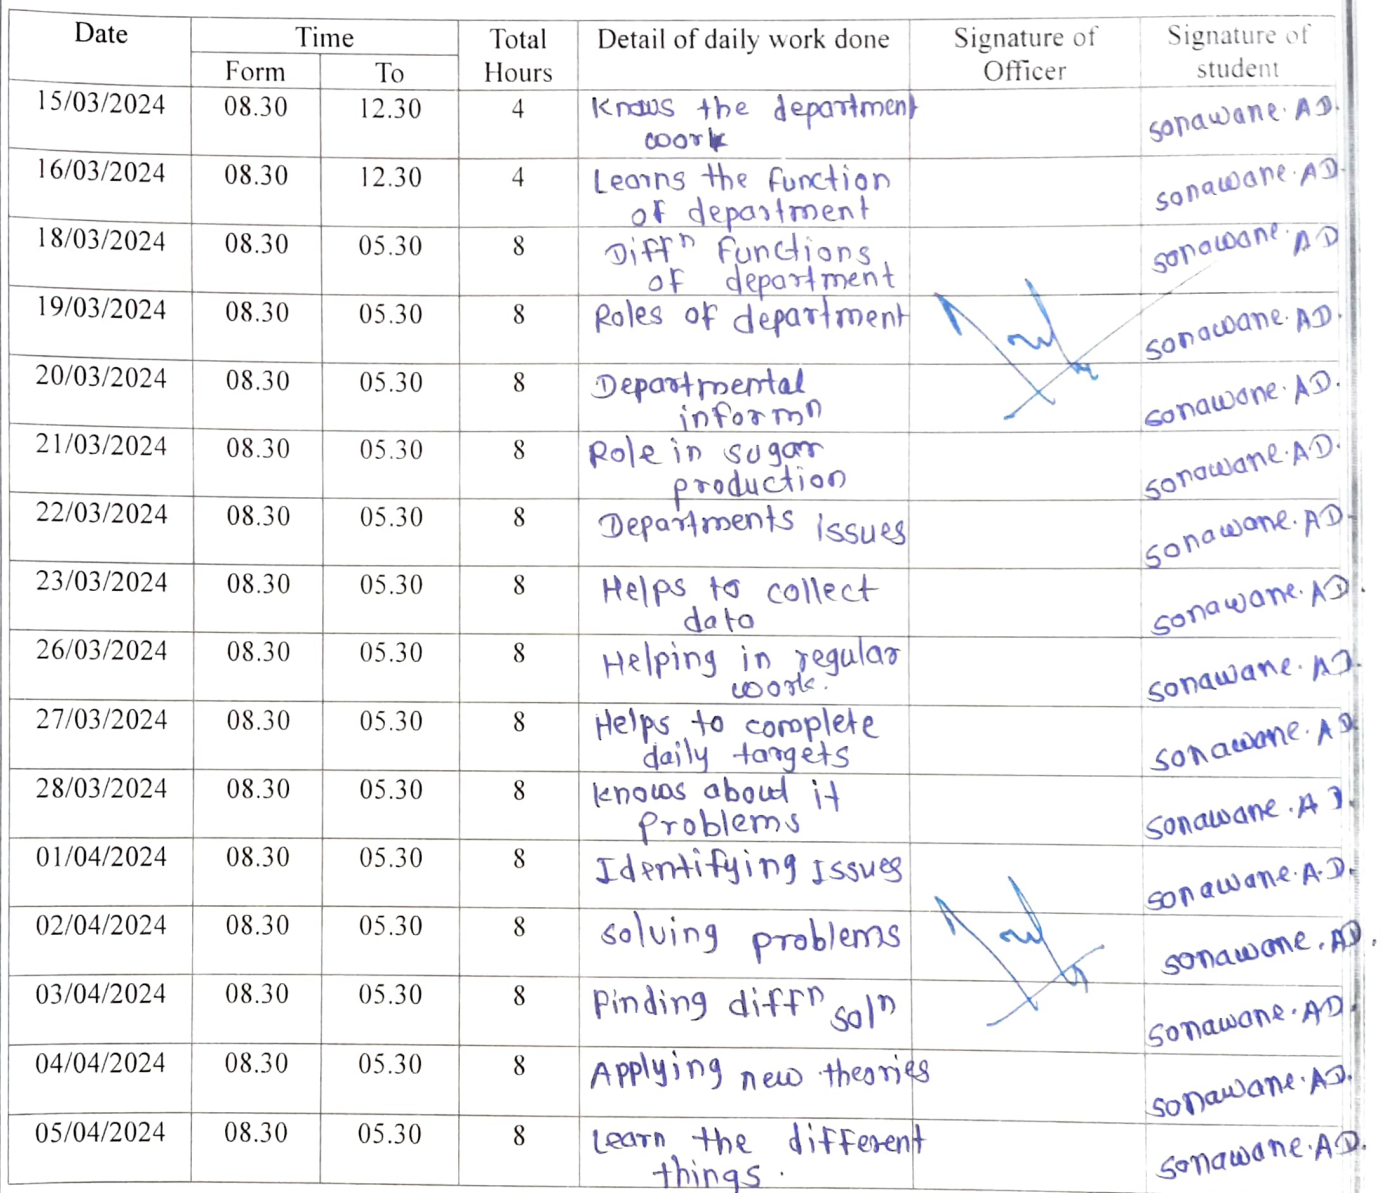 Date Time Total Hours Detail of daily work done Signature of Officer Signature of student
Form To
15/03/2024 08.30 12.30 4 Knows the department work sonawane. A D.
16/03/2024 08.30 12.30 4 Learns the function of department sonawane. AD.
18/03/2024 08.30 05.30 8 Diffⁿ functions of department sonawane. AD
19/03/2024 08.30 05.30 8 Roles of department sonawane. AD.
20/03/2024 08.30 05.30 8 Departmental informⁿ sonawane. AD.
21/03/2024 08.30 05.30 8 Role in sugar production sonawane. AD.
22/03/2024 08.30 05.30 8 Departments issues sonawane. AD
23/03/2024 08.30 05.30 8 Helps to collect data sonawane. AD.
26/03/2024 08.30 05.30 8 Helping in regular work. sonawane. AD.
27/03/2024 08.30 05.30 8 Helps to complete daily targets sonawane. AD
28/03/2024 08.30 05.30 8 knows about it problems sonawane. A D.
01/04/2024 08.30 05.30 8 Identifying issues sonawane. A.D.
02/04/2024 08.30 05.30 8 solving problems sonawane. AD.
03/04/2024 08.30 05.30 8 Finding diffⁿ solⁿ sonawane. AD
04/04/2024 08.30 05.30 8 Applying new theories sonawane. AD.
05/04/2024 08.30 05.30 8 Learn the different things. sonawane. AD.